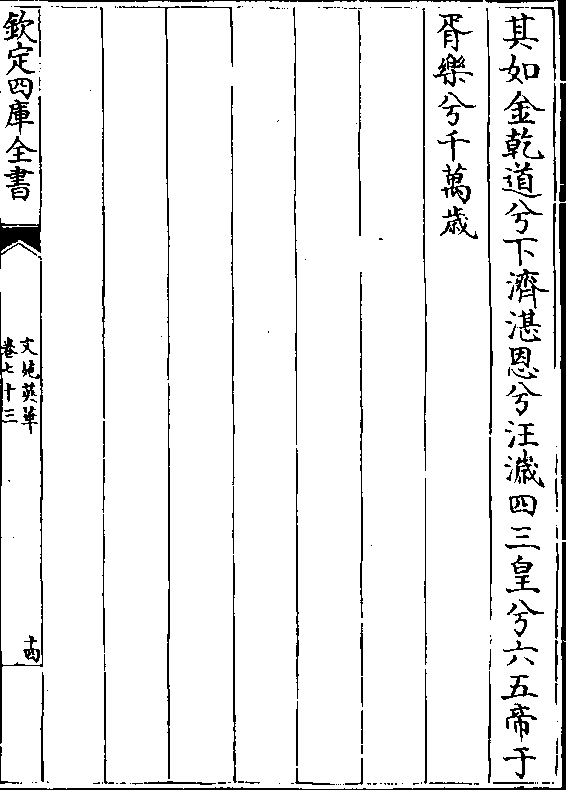 其如金乾道兮下濟湛恩兮汪濊四三皇兮六五帝于
胥樂兮千萬歳
欽定四庫全書
文苑英華
卷七十三
十四